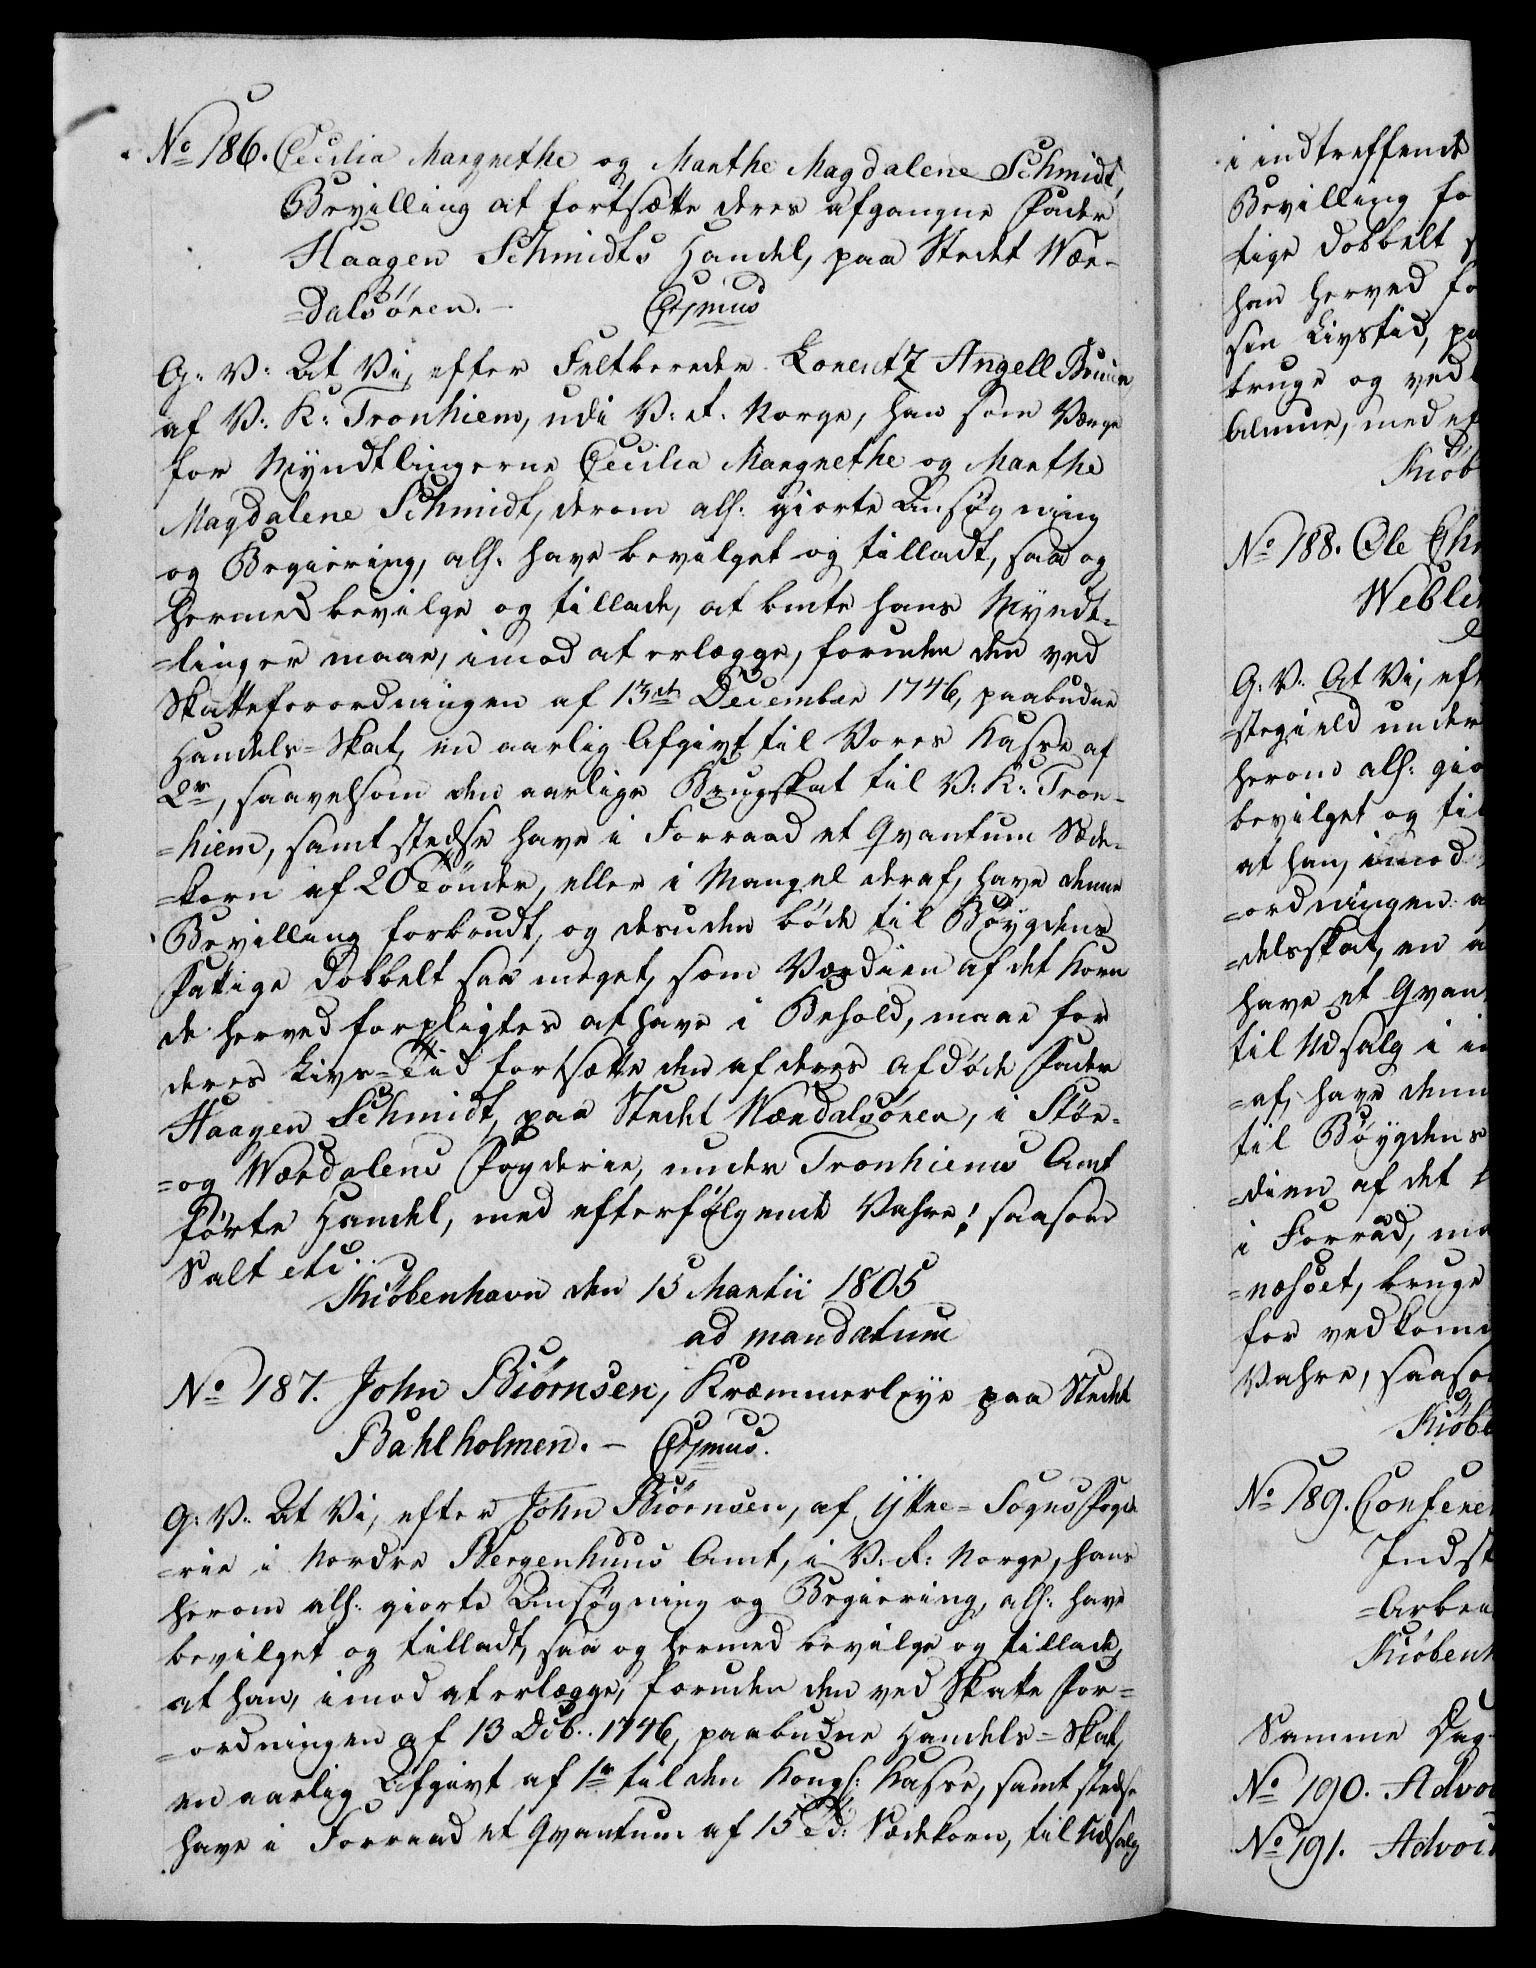 No 186. Cecilia Margrethe og Marthe Magdalene Schmidt,
Bevilling at fortsætte deres afgangne Fader
Haagen Schmidts Handel, paa Stedet Vær-
=dalsören. — Cjsmus
G: V: At Vi, efter Feltbereder Lorentz Angell Bruun,
af V: K: Tronhiem, udi V: R: Norge, han som Værge
for Myndtlingerne Cecilia Margrethe og Marthe
Magdalene Schmidt, derom alh: giorte Ansøgning
og Begiering, alh: have bevilget og tilladt, saa og
hermed bevilge og tillade, at bmte hans Myndt-
=linger maae, imod at erlægge, foruden den ved
Skatteforordningen af 13de December 1746, paabudne
Handels=Skat, en aarlig Afgivt til Vores Kasse af
2r, saavelsom den aarlige Brugskat til V: K: Tron-
=hiem, samt stedse have i Forraad et Qvantum Sæde-
=korn af 20 Tönder, eller i Mangel deraf, have denne
Bevilling forbrudt, og desuden böde til Böygdens
Fattige dobbelt saa meget, som Værdien af det Korn
de herved forpligtes at have i Behold, maae for
deres Livs=Tid fortsætte den af deres afdöde Fader
Haagen Schmidt, paa Stedet Værdalsören, i Stör-
=og Værdalens Fogderie, under Tronhiems Amt
förte Handel, med efterfölgende Vahre: saasom
Salt etc.
Kiöbenhavn den 15 Martii 1805
ad mandatum
No 187. John Biörnsen, Kræmmerleye paa Stedet
Bahlholmen. — Cjsmus.
G: V: At Vi, efter John Biörnsen, af Yttre=Sogns Fogde
=rie i Nordre Bergenhuus Amt, i V: R: Norge, hans
herom alh: giorte Ansøgning og Begiering, alh: have
bevilget og tilladt, saa og hermed bevilge og tillade,
at han, imod at erlægge, foruden den ved Skatte For=
=ordningen af 13 Dcb: 1746, paabudne Handels=Skat,
en aarlig Afgivt af 1r til den Kongl: Kasse, samt stedse
have i Forraad et Qvantum af 15 Td: Sædekorn, til Udsalg
i indtreffende
Bevilling fo
tige dobbelt
han herved fo
sin Livstid, pa
bruge og ved
Almue, med ef
Kiöb
No 188. Ole Chr
Weble
G: V: At Vi, eft
=stegield under
herom alh: gio
bevilget og til
at han, imod
=ordningen a
=delsskat, en a
have et Qvan
til Udsalg i in
=af, have denn
til Böygdens
=dien af det
i Forråd, ma
=næhset, bruge
for vedkomm
Vahre, saasom
Kiöbe
No 189. Conferen
Indst
=Arben
Kiöbenh
Samme Dag
No 190. Advoc
No 191. Advoc